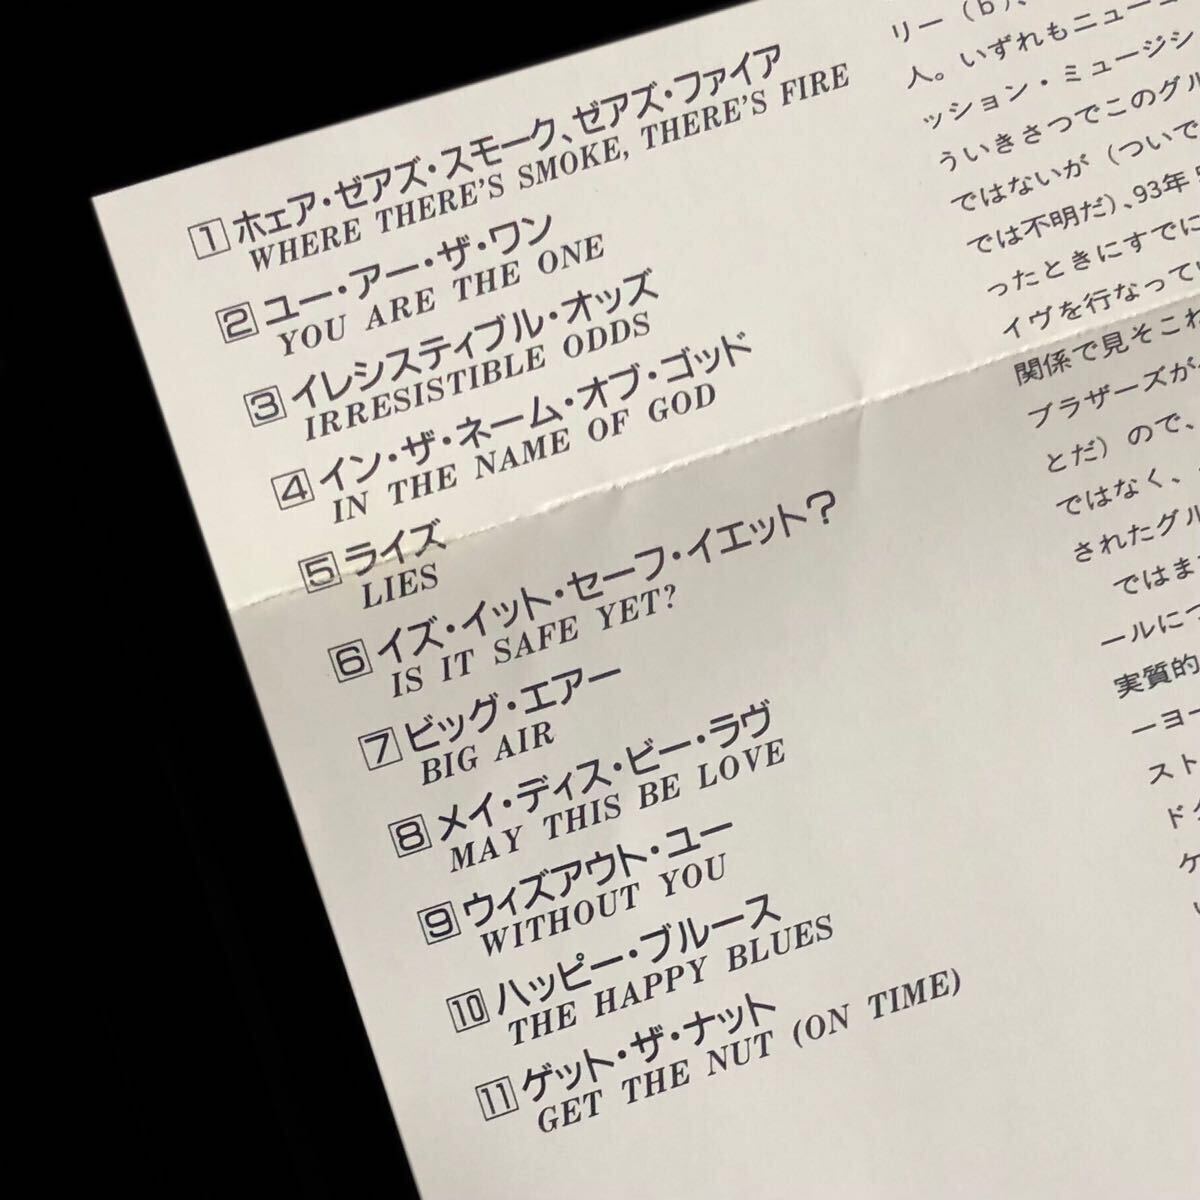 1 ホェア・ゼアズ・スモーク、ゼアズ・ファイア
WHERE THERE'S SMOKE, THERE'S FIRE
2 ユー・アー・ザ・ワン
YOU ARE THE ONE
3 イレシスティブル・オッズ
IRRESISTIBLE ODDS
4 イン・ザ・ネーム・オブ・ゴッド
IN THE NAME OF GOD
5 ライズ
LIES
6 イズ・イット・セーフ・イエット？
IS IT SAFE YET?
7 ビッグ・エアー
BIG AIR
8 メイ・ディス・ビー・ラヴ
MAY THIS BE LOVE
9 ウィズアウト・ユー
WITHOUT YOU
10 ハッピー・ブルース
THE HAPPY BLUES
11 ゲット・ザ・ナット
GET THE NUT (ON TIME)
リー（b）、
人。いずれもニュー
ッション・ミュージシ
ういきさつでこのグル
ではないが（ついで
では不明だ）、93年
ったときにすでに
イヴを行なって
関係で見そこ
ブラザーズが
とだ）ので、
ではなく、
されたグル
ではま
ールに
実質的
ーヨー
スト
ド
ケ